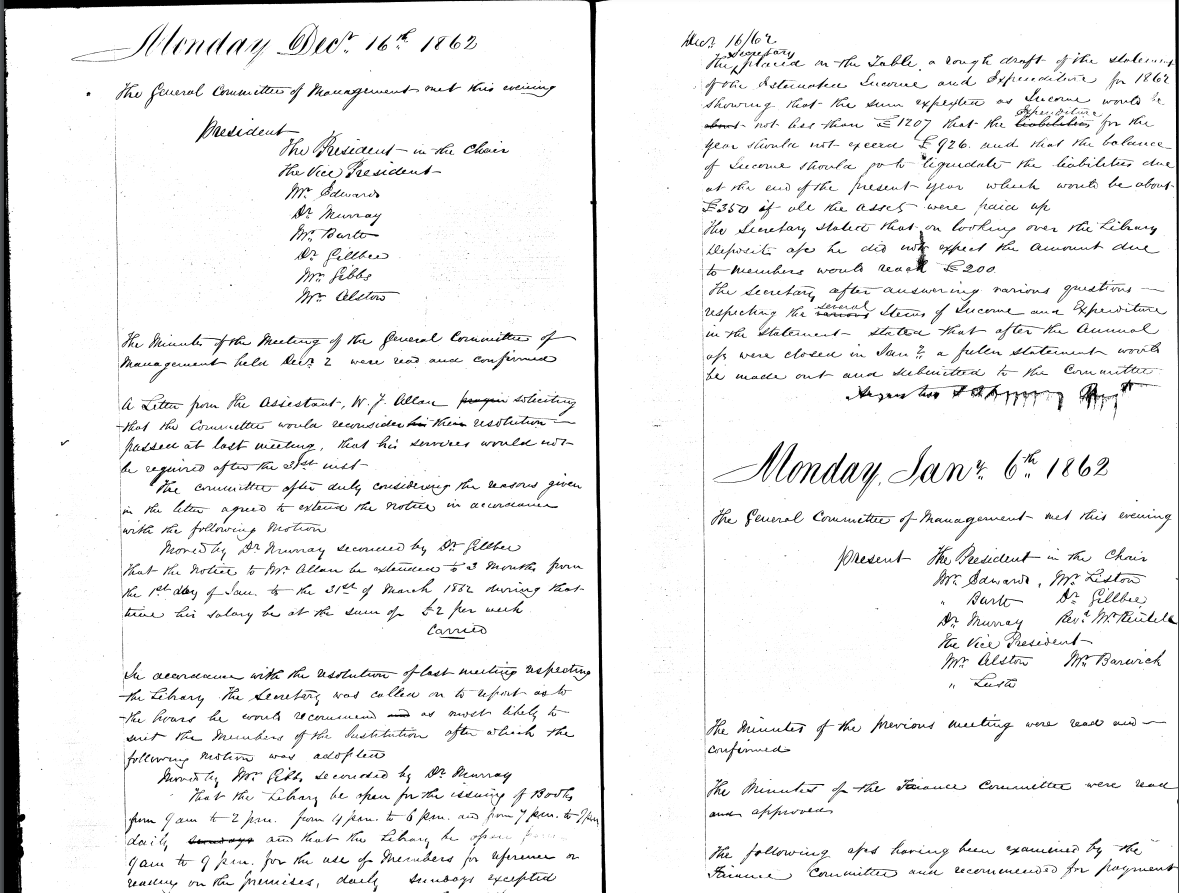 Monday Decr. 16th. 1862
The General Committee of Management met this evening
President
The President in the Chair
The Vice President
Mr. Edwards
Dr. Murray
Mr. Burtt
Dr. Gillbee
Mr. Gibbs
Mr. Alston
The Minutes of the Meeting of the General Committee of
Management held Decr. 2 were read and confirmed
A Letter from the Assistant, W. J. Allan soliciting
that the Committee would reconsider his their resolution
passed at last meeting, that his services would not
be required after the 31st inst
The Committee after duly considering the reasons given
in the letter agreed to extend the notice in accordance
with the following Motion
Moved by Dr Murray seconded by Dr. Gillbee
That the notice to Mr. Allan be extended to 3 Months from
the 1st day of Jan. to the 31st of March 1862 during that
time his salary be at the sum of £2 per week
Carried
In accordance with the resolution of last meeting respecting
the Library the Secretary was called on to report as to
the hours he would recommend and as most likely to
suit the Members of the Institution after which the
following motion was adopted
Moved by Mr. Gibbs seconded by Dr. Murray
That the Library be open for the issuing of Books
from 9 am to 2 pm. from 4 pm. to 6 pm. and from 7 pm. to 9 pm
daily sundays and that the Library be open from
9 am to 9 pm. for the use of Members for reference or
reading on the premises, daily sundays excepted
Decr. 16/62
Secretary
The placed on the Table a rough draft of the statement
of the Estimated Income and Expenditure for 1862
showing that the sum expected as Income would be
about not less than £1207 that the liabilities Expenditure for the
year should not exceed £926. and that the balance
of Income should go to liquidate the liabilities due
at the end of the present year which would be about
£350 if all the assets were paid up
The Secretary stated that on looking over the Library
Deposits a/c he did not expect the amount due
to members would reach £200.
The Secretary after answering various questions
respecting the various several Items of Income and Expenditure
in the statement stated that after the Annual
a/cs were closed in Jany. a fuller statement would
be made out and submitted to the Committee
Monday, Jany. 6th. 1862
The General Committee of Management met this evening
Present The President in the Chair
Mr. Edwards, Mr. Liston
" Burtt Dr. Gillbee
Dr. Murray Revd. Mr.
The Vice President
Mr. Alston Mr. Barwick
" Lush
The Minutes of the previous meeting were read and
confirmed
The Minutes of the Finance Committee were read
and approved
The following a/cs having been examined by the
Finance Committee and recommended for payment